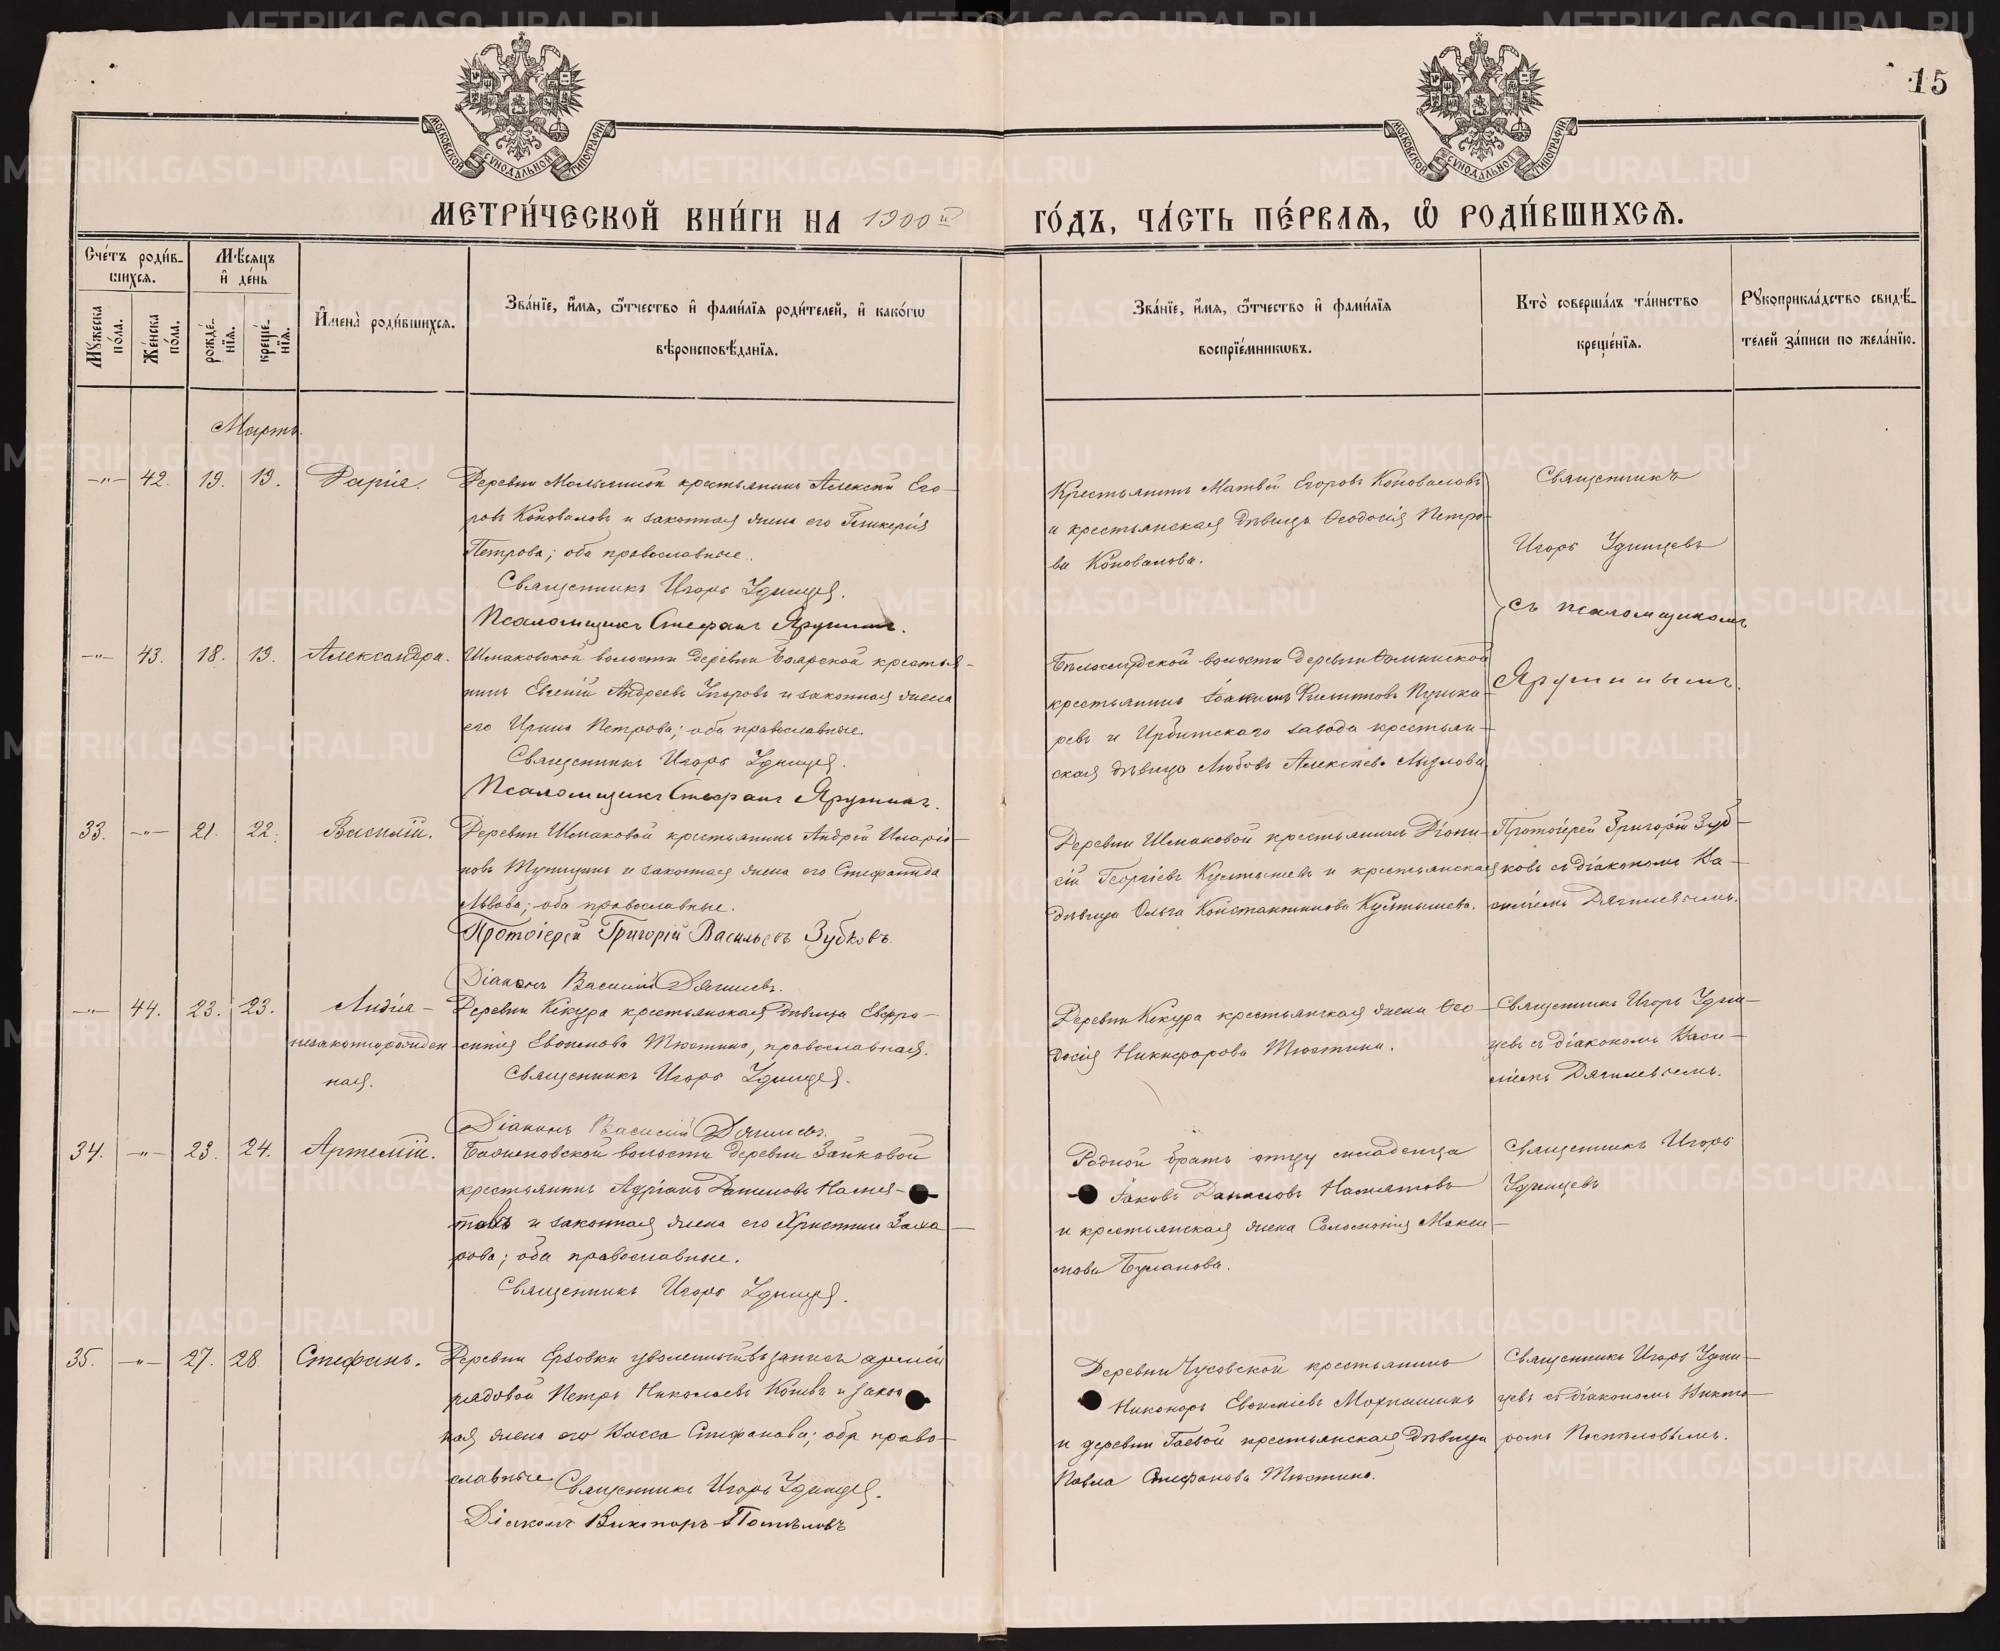 15
МОСКОВСКОЙ СУНОДАЛЬНОЙ ТИПОГРАФІИ
МОСКОВСКОЙ СУНОДАЛЬНОЙ ТИПОГРАФІИ
МЕТРИ́ЧЕСКОЙ КНИ́ГИ НА 1900 й ГО́ДЪ, ЧА́СТЬ ПЕ́РВАЯ, Ѽ РОДИ́ВШИХСЯ.
Сче́тъ роди́в-
шихся.
Мꙋжеска по́ла.
Же́нска по́ла.
Мѣ́сяцъ и де́нь
рожде́-нїя.
креще́-нїя.
Имена̀ роди́вшихся.
Зва́нїе, и́мя, ѻ́тчество и фами́лїя роди́телей, и како́гѡ
вѣроисповѣ́данїя.
Зва́нїе, и́мя, ѻ́тчество и фами́лїя
воспрїе́мникѡвъ.
Кто̀ соверша́лъ та́инство
креще́нїя.
Рꙋкоприкла́дство свидѣ́-
телей за́писи по жела́нїю.
Мартъ.
-„- 42. 19. 19. Дарія.
Деревни Молычной крестьянинъ Алексѣй Его-
ровъ Коноваловъ и законная жена его Гликерія
Петрова; оба православные.
Священникъ Игорь Удинцев.
Псаломщикъ Стефанъ Ярутинъ.
Крестьянинъ Матвѣй Егоровъ Коноваловъ
и крестьянская дѣвица Ѳеодосія Петро-
ва Коновалова.
Священникъ
Игорь Удинцевъ
съ псаломщикомъ
Ярутинымъ.
-„- 43. 18. 19. Александра.
Шмаковской волости деревни Боярской крестья-
нинъ Евгеній Андреевъ Егоровъ и законная жена
его Ирина Петрова; оба православные.
Священникъ Игорь Удинцев.
Псаломщикъ Стефанъ Ярутинъ.
Бѣлослудской волости деревни Ѳоминской
крестьянинъ Іоакимъ Филиптовъ Пушка-
ревъ и Ирбитскаго завода крестьян-
ская дѣвица Любовь Алексѣева Мызлова
33. -„- 21. 22. Василій.
Деревни Шмаковой крестьянинъ Андрей Иларіо-
новъ Тупицынъ и законная жена его Стефанида
Львова; оба православные.
Протоіерей Григорій Васильевъ Зубковъ.
Діаконъ Василій Дягилевъ.
Деревни Шмаковой крестьянинъ Діони-
сій Георгіевъ Култышевъ и крестьянская
дѣвица Ольга Константинова Култышева.
Протоіерей Григорій Зуб-
ковъ съ діакономъ Ва-
силіемъ Дягилевымъ.
-„- 44. 23. 23. Лидія -
незаконнорожден
ная.
Деревни Кекура крестьянская дѣвица Евфро-
синія Евѳимова Тюстина, православная.
Священникъ Игорь Удинцев.
Діаконъ Василій Дягилевъ.
Деревни Кекура крестьянская жена Ѳео-
досія Никифорова Тюстина.
Священникъ Игорь Удин-
цевъ съ діакономъ Васи-
ліемъ Дягилевымъ.
34. -„- 23. 24. Артемій.
Баженовской волости деревни Зайковой
крестьянинъ Адріанъ Даниловъ Намя-
товъ и законная жена его Христина Заха-
рова; оба православные.
Священникъ Игорь Удинцев.
Родной братъ отцу младенца
Іаковъ Даниловъ Намятовъ
и крестьянская жена Соломонія Макси-
мова Буланова.
Священникъ Игорь
Удинцевъ
35. -„- 27. 28. Стефанъ.
Деревни Ерзовки уволенный въ запасъ арміи
рядовой Петръ Николаевъ Котевъ и закон
ная жена его Васса Стефанова; оба право-
славные
Священникъ Игорь Удинцев.
Діаконъ Викторъ Поспѣловъ
Деревни Чусовской крестьянинъ
Никоноръ Евѳиміевъ Мохнашинъ
и деревни Гаевой крестьянская дѣвица
Павла Стефанова Тюстина.
Священникъ Игорь Удин-
цевъ съ діакономъ Викто-
ромъ Поспѣловымъ.
METRIKI.GASO-URAL.RU